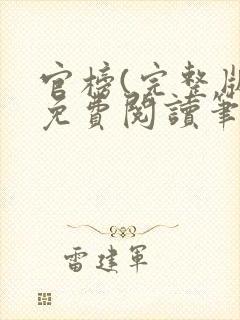 官榜(完整版
免費閱讀筆
雷建軍